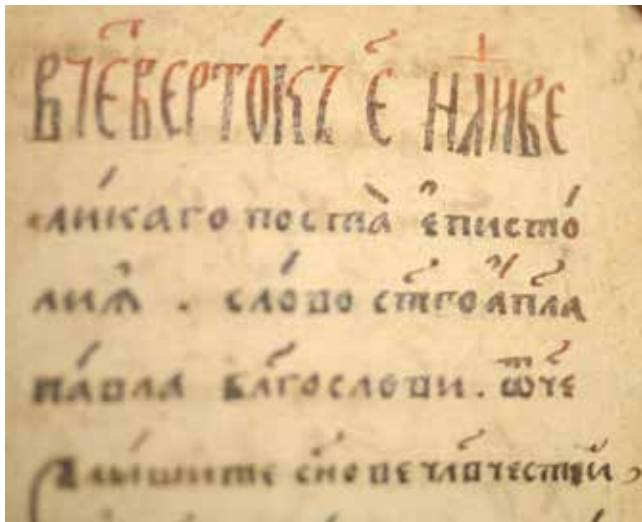 вче́тверто́къ е҃ нл҃ и ве
ли́каго поста̀ е҆писто́
лиѧ҆ . сло́во ст҃го а҆́пл҃а
па́вла бл҃гослови . ѿ҃че
слы́шите сн҃ове чл҃вчестїи ,